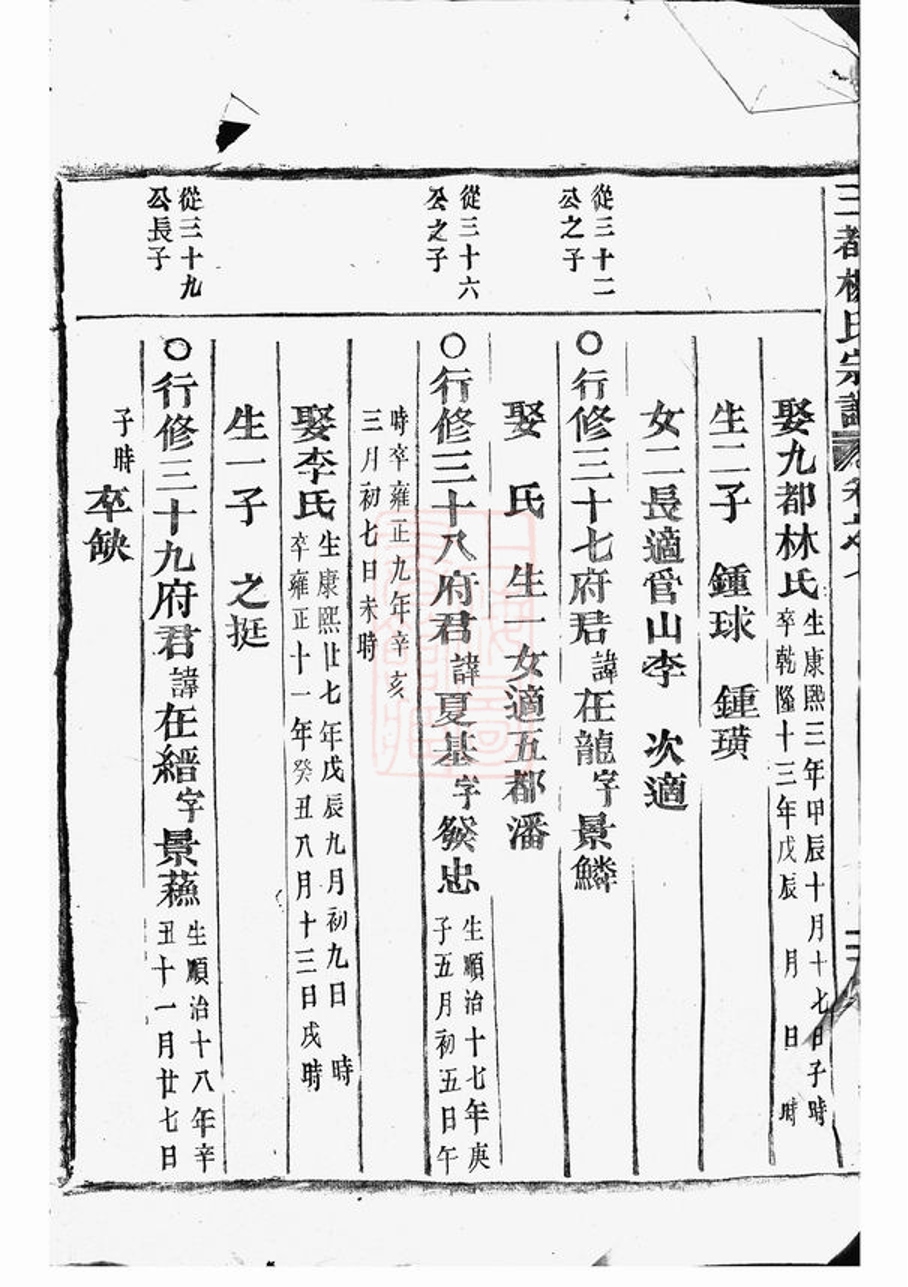 三都楊氏宗譜
娶九都林氏 生康熙三年甲辰十月十七日子時
卒乾隆十三年戊辰 月 日 時
生二子 鍾球 鍾璜
女二長適官山李 次適
從三十二
公之子
○行修三十七府君諱在龍字景鱗
娶 氏 生一女適五都潘
從三十六
公之子
○行修三十八府君諱夏基字發忠 生順治十七年庚
子五月初五日午
時卒雍正九年辛亥
三月初七日未時
娶李氏 生康熙廿七年戊辰九月初九日 時
卒雍正十一年癸丑八月十三日戌時
生一子 之挺
從三十九
公長子
○行修三十九府君諱在縉字景蘓 生順治十八年辛
丑十一月廿七日
子時
卒缺